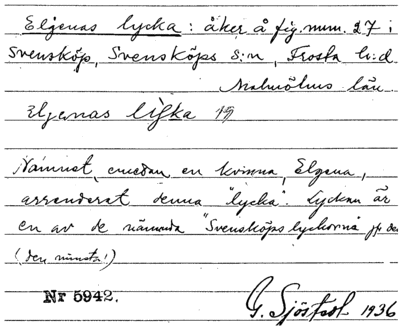 Elgenas lycka: åker å fig. num. 27 i
Svensköp, Svensköps S:n, Frosta h:d
Malmöhus län
Elgenas
Namnet, emedan en kvinna, Elgena,
arrenderat denna "lycka". Lyckan är
en av de nämnda "Svensköpslyckorna"
(den minsta!)
Nr 5942. G. Sjöstedt 1936